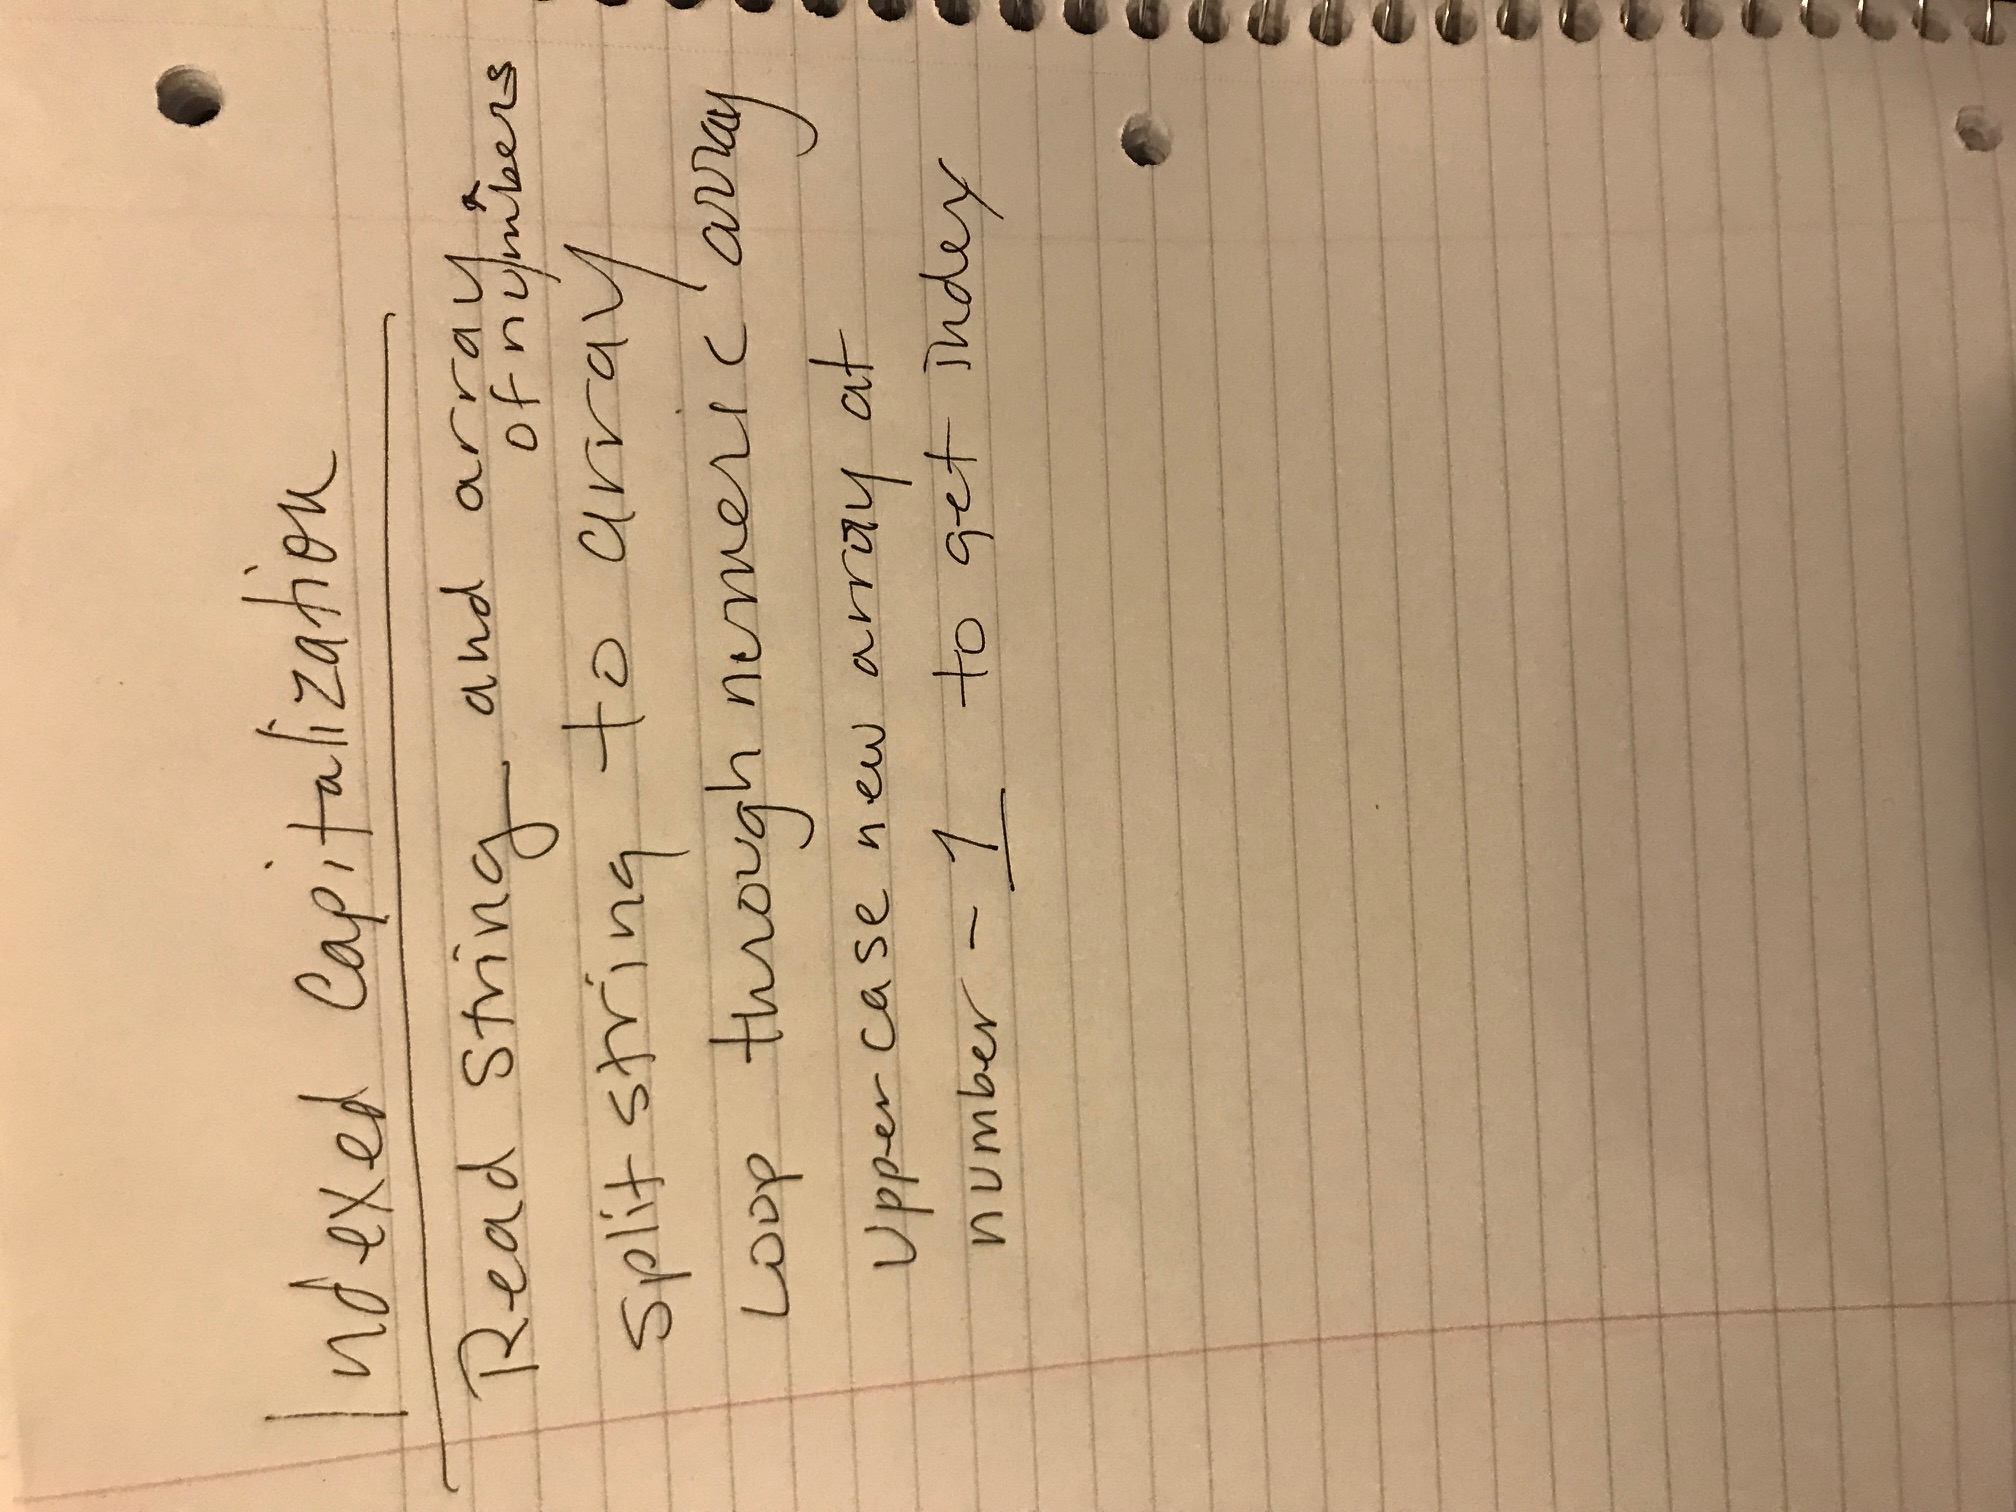 Indexed Capitalization
Read string and array ^
of numbers
split string to array
Loop through numeric array
Uppercase new array at
number - 1 to get index